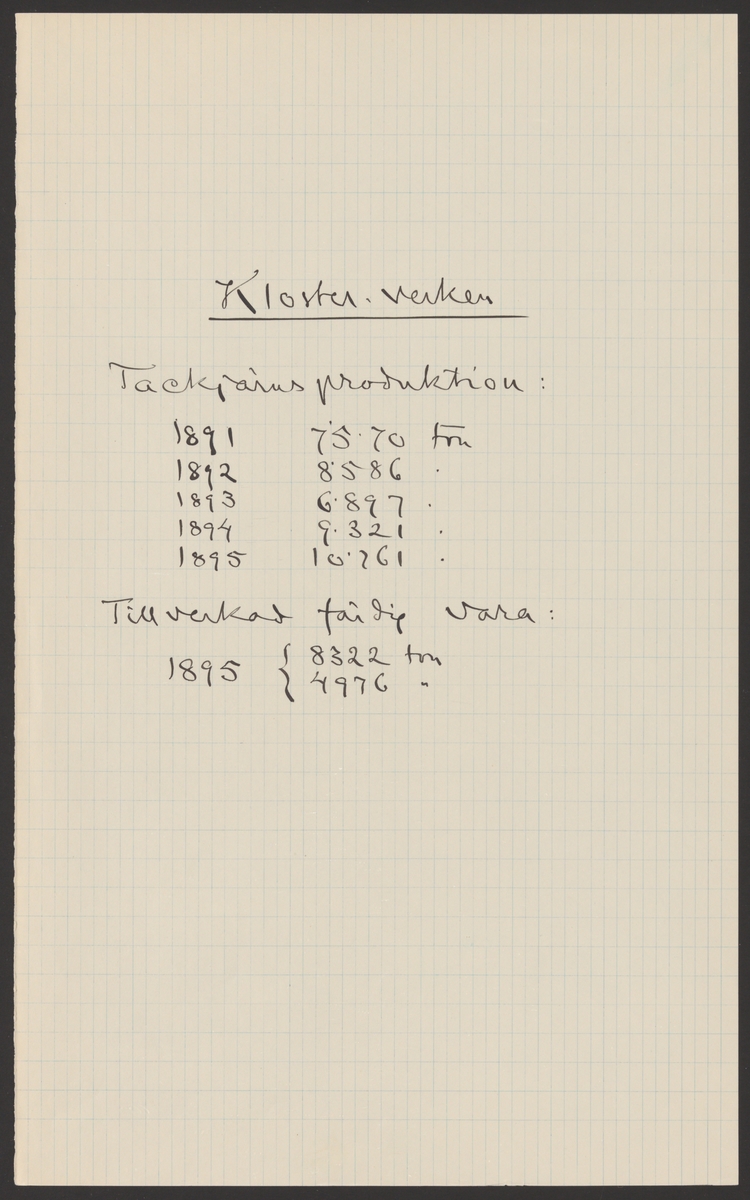 Kloster-verken
Tackjärnsproduktion:
1891 75·70 ton
1892 8·586 "
1893 6·897 "
1894 9·321 "
1895 10·761 "
Tillverkad färdig vara:
1895 { 8322 ton
4976 "